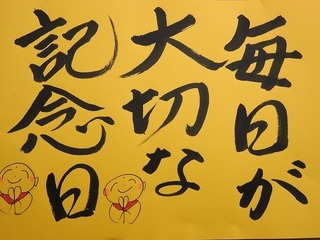 毎日が
大切な
記念日